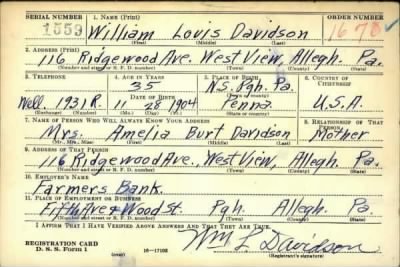 SERIAL NUMBER 1. NAME (Print) ORDER NUMBER
1559 William Louis Davidson 1678
(First) (Middle) (Last)
2. ADDRESS (Print)
116 Ridgewood Ave. West View, Allegh. Pa.
(Number and street or R. F. D. number) (Town) (County) (State)
3. TELEPHONE 4. AGE IN YEARS 5. PLACE OF BIRTH 6. COUNTRY OF CITIZENSHIP
35 N.S. Pgh. Pa.
DATE OF BIRTH (Town or county)
Well. 1931 R. 11 28 1904 Penna. U.S.A.
(Exchange) (Number) (Mo.) (Day) (Yr.) (State or country)
7. NAME OF PERSON WHO WILL ALWAYS KNOW YOUR ADDRESS 8. RELATIONSHIP OF THAT PERSON
Mrs. Amelia Burt Davidson Mother
(Mr., Mrs., Miss) (First) (Middle) (Last)
9. ADDRESS OF THAT PERSON
116 Ridgewood Ave., West View, Allegh. Pa.
(Number and street or R. F. D. number) (Town) (County) (State)
10. EMPLOYER'S NAME
Farmers Bank.
11. PLACE OF EMPLOYMENT OR BUSINESS
Fifth Ave & Wood St. Pgh. Allegh. Pa.
(Number and street or R. F. D. number) (Town) (County) (State)
I AFFIRM THAT I HAVE VERIFIED ABOVE ANSWERS AND THAT THEY ARE TRUE.
REGISTRATION CARD
D. S. S. Form 1 (over) 16-17105 Wm L Davidson
(Registrant's signature)